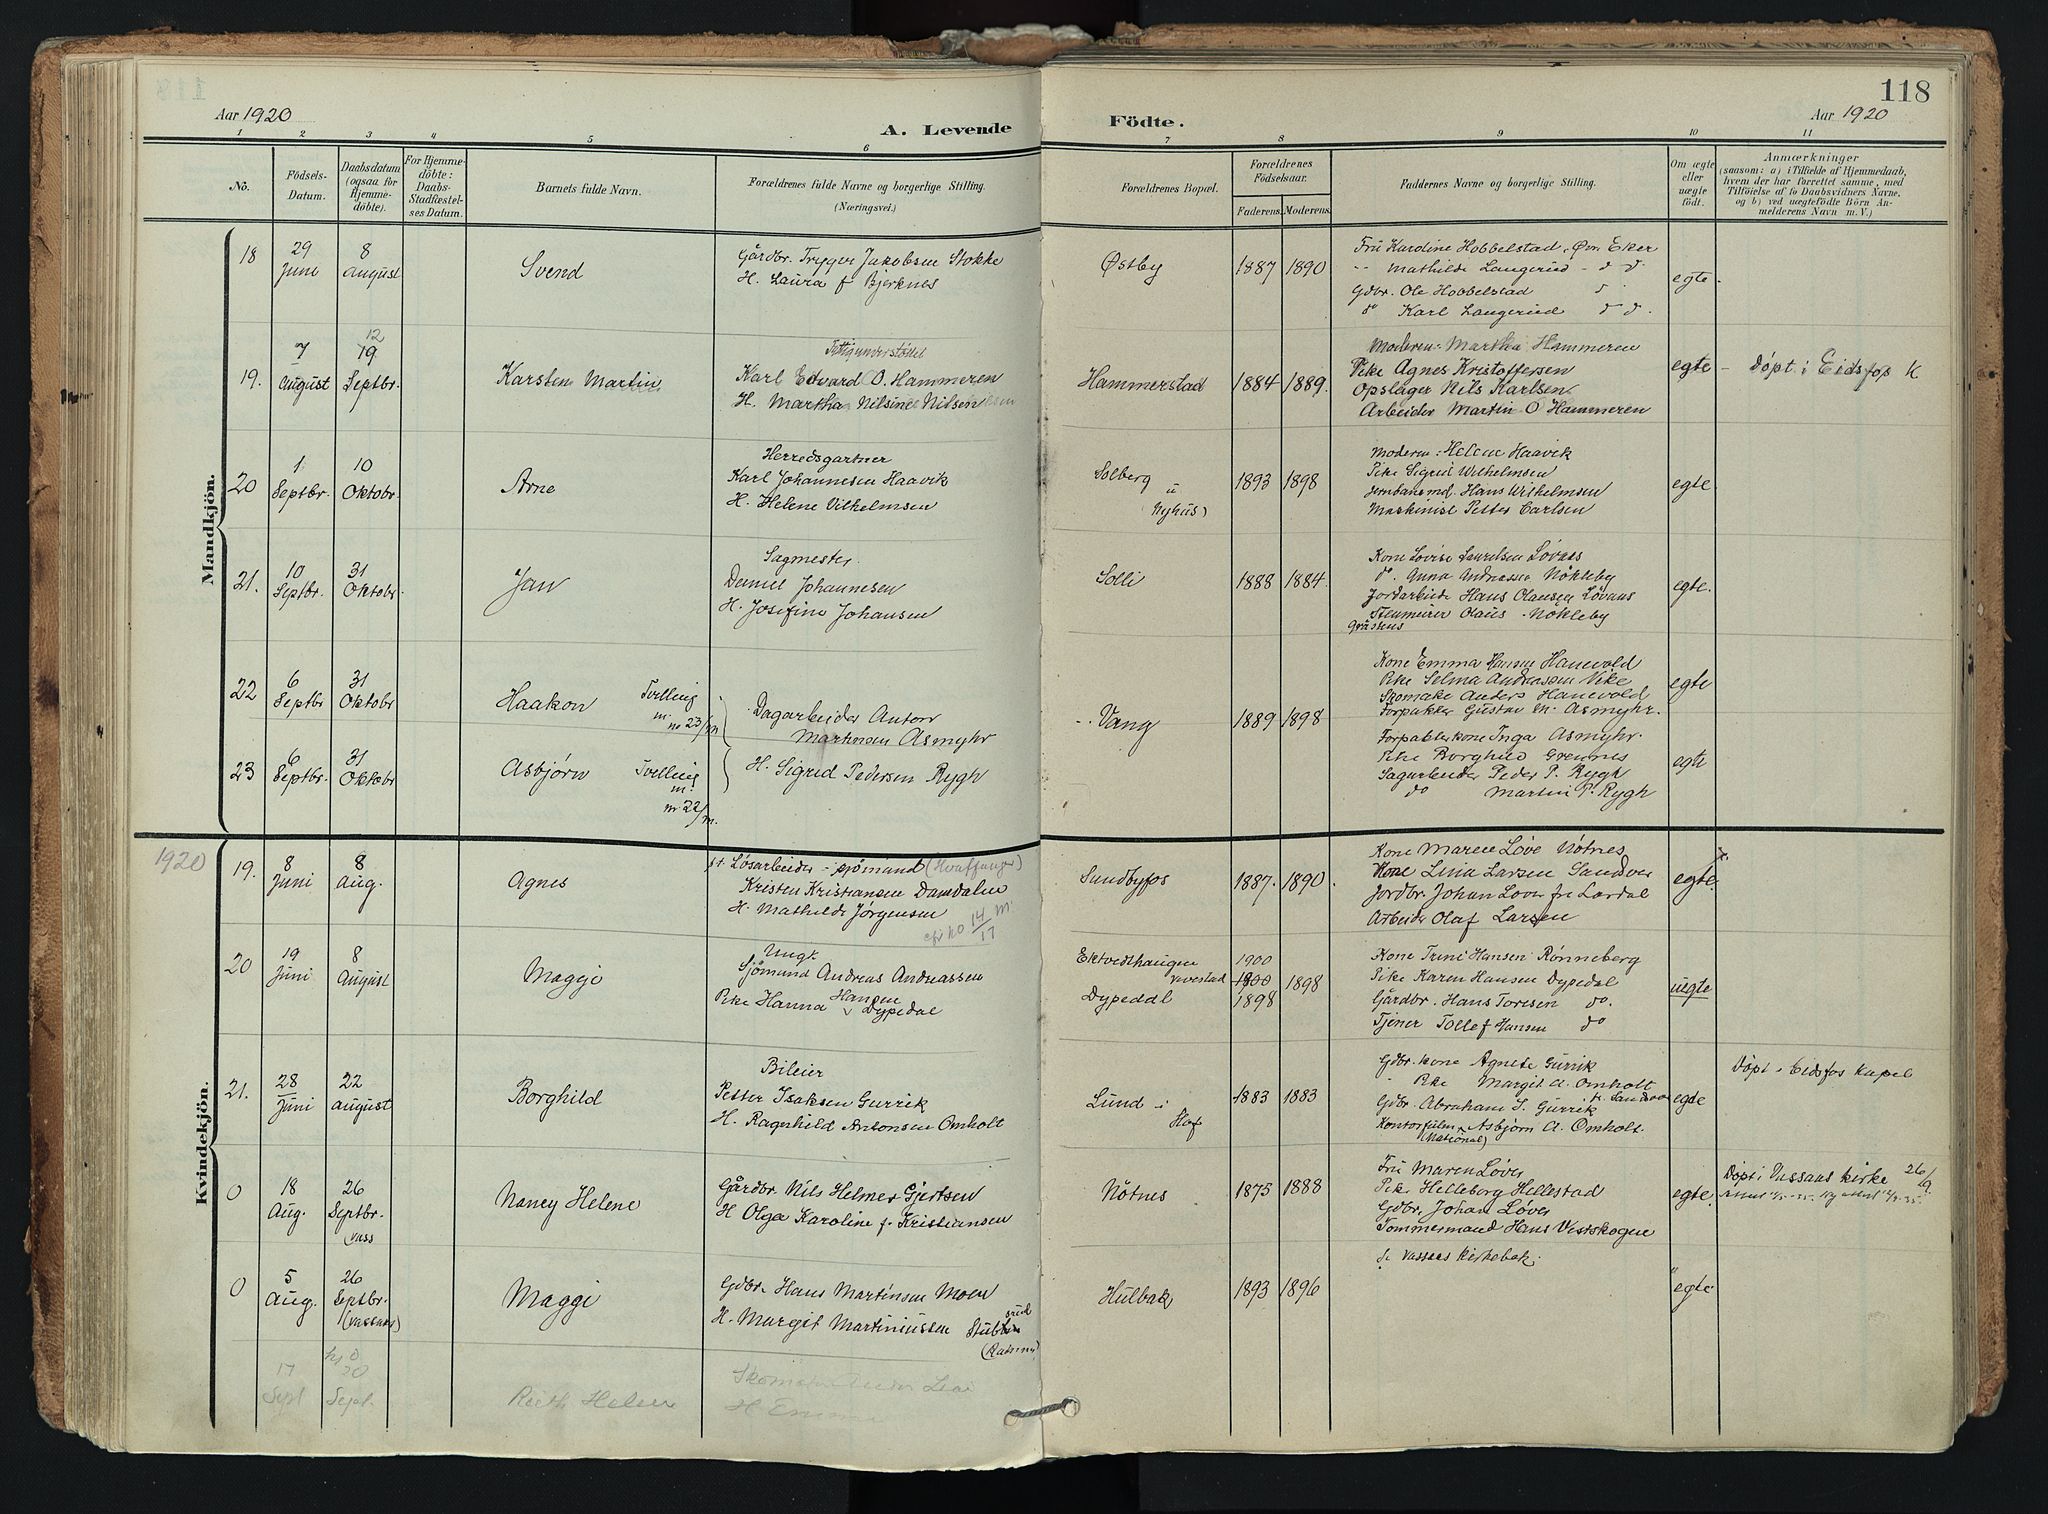 118
Aar 1920
A. Levende Födte.
Aar 1920
1 2 3 4 5 6 7 8 9 10 11
No.
Födsels-
Datum.
Daabsdatum
(ogsaa for
Hjemme-
döbte).
For Hjemme-
döbte:
Daabs-
Stadfæstel-
ses Datum.
Barnets fulde Navn.
Forældrenes fulde Navne og borgerlige Stilling.
(Næringsvei.)
Forældrenes Bopæl.
Forældrenes
Födselsaar.
Faderens. Moderens.
Faddernes Navne og borgerlige Stilling.
Om ægte
eller
uægte
födt.
Anmærkninger
(saasom: a) i Tilfælde af Hjemmedaab,
hvem der har forrettet samme, med
Tilföielse af to Daabsvidners Navne,
og b) ved uægtefödte Börn An-
melderens Navn m. V.)
Mandkjön.
18
29
Juni
8
August
Svend
Gårdbr. Trygve Jakobsen Stokke
H. Laura f Bjerknes
Østby
1887 1890
Fru Karoline Hobbelstad, Øvr. Eker
" Mathilde Langerud - d d.
Gdbr. Ole Hobbelstad
d° Karl Langerud d d.
egte.
19.
7
August
12
19
Septbr.
Karsten Martin
Karl Edvard O. Hammeren
H. Martha Nilsine Nilsen
Hammerstad
1884 1889.
Moderen: Martha Hammeren
Pike Agnes Kristoffersen
Opslager Nils Karlsen
Arbeider Martin O Hammeren
egte
- Døpt i Eidsfos K
20
1
Septbr.
10
Oktobr.
Arne
Herredsgartner
Karl Johannesen Haavik
H. Helene Vilhelmsen
Solberg
u
(Nyhus)
1893 1898
Moderen: Helene Haavik
Pike Sigrid Wilhelmsen
Jernbanemd. Hans Wilhelmsen
Maskinist Petter Carlsen
egte.
21.
10
Septbr.
31
Oktobr.
Jan
Sagmester
Daniel Johannesen
H. Josefine Johansen
Solli
1888 1884.
Kone Lovise Lauritsen Løvaas
d°. Anna Andreassen Nökleby
Jordarbeide Hans Olausen Løvaas
Stenmurer Olaus Nökleby
egte.
22
6
Septbr
31
Oktobr
Haakon
Tvilling
m.
no 23/m
Dagarbeider Anton
Martinsen Asmyhr
Vang
1889 1898
Kone Emma Hansen Hanevold
Pike Selma Andreassen Vike
Skomake Anders Hanevold
Forpakter Gustav M. Asmyhr.
egte
23
6
Septbr.
31
Oktobr
Asbjørn
Tvilling
m.
nr 22/m.
H. Sigrid Pedersen Rygh
Forpakterkone Inga Asmyhr.
Pike Borghild Grennes
Sagarbeider Peder P. Rygh
do Martin P. Rygh
egte
Kvindekjön.
1920
19.
8
Juni
8
Aug.
Agnes
Løsarbeider - sjømand (Hvalfanger)
Kristen Kristiansen Damdalen
H. Mathilde Jørgensen
cfr no 14/17 m.
Sundbyfos
1887. 1890.
Kone Maren Løve Nötnes
Kone Lina Larsen Sandsvær
Jordbr. Johan Løve fr Lardal
Arbeider Olaf Larsen
egte.
20
19
Juni
8
August
Maggi
Ungk
Sjömand Andreas Andreassen
Pike Hanna Hansen Dypedal
Ektvedthaugen
Dypedal
1900
1900
1898
1898
Kone Trine Hansen Rønneberg
Pike Karen Hansen Dypedal
Gårdbr. Hans Toresen do.
Tjener Tollef Hansen do
uegte
21.
28
Juni
22
August
Borghild
Bileier
Petter Isaksen Gurrik
H. Ragnhild Antonsen Omholt
Lund i
Hof
1883 1883
Gdbr. kone Agnete Gurrik
Pike Margit A. Omholt
Gdbr. Abraham S. Gurrik
Kontorfulm. Asbjørn A. Omholt.
(National)
egte
Døpt i Eidsfos Kapel
0
18
Aug.
26
Septbr.
(vass
Nancy Helene
Gårdbr. Nils Helmer Gjertsen
H Olga Karoline f. Kristiansen
Nötnes
1875 1888
Fru Maren Løve
Pike Helleborg Hellestad
Gdbr. Johan Løve
Tømmermand Hans Vestskogen
egte.
Døpt i Vassaas kirke 26/9
0
5
Aug.
26
Septbr.
(vassaas)
Maggi
Gdbr. Hans Martinsen Moen
H. Margit Martiniussen
Hulbak
1893 1896
Se Vassaas kirkebok.
egte.
17
Sept
hj.d
20
Sept.
Ruth Helene
H Emma